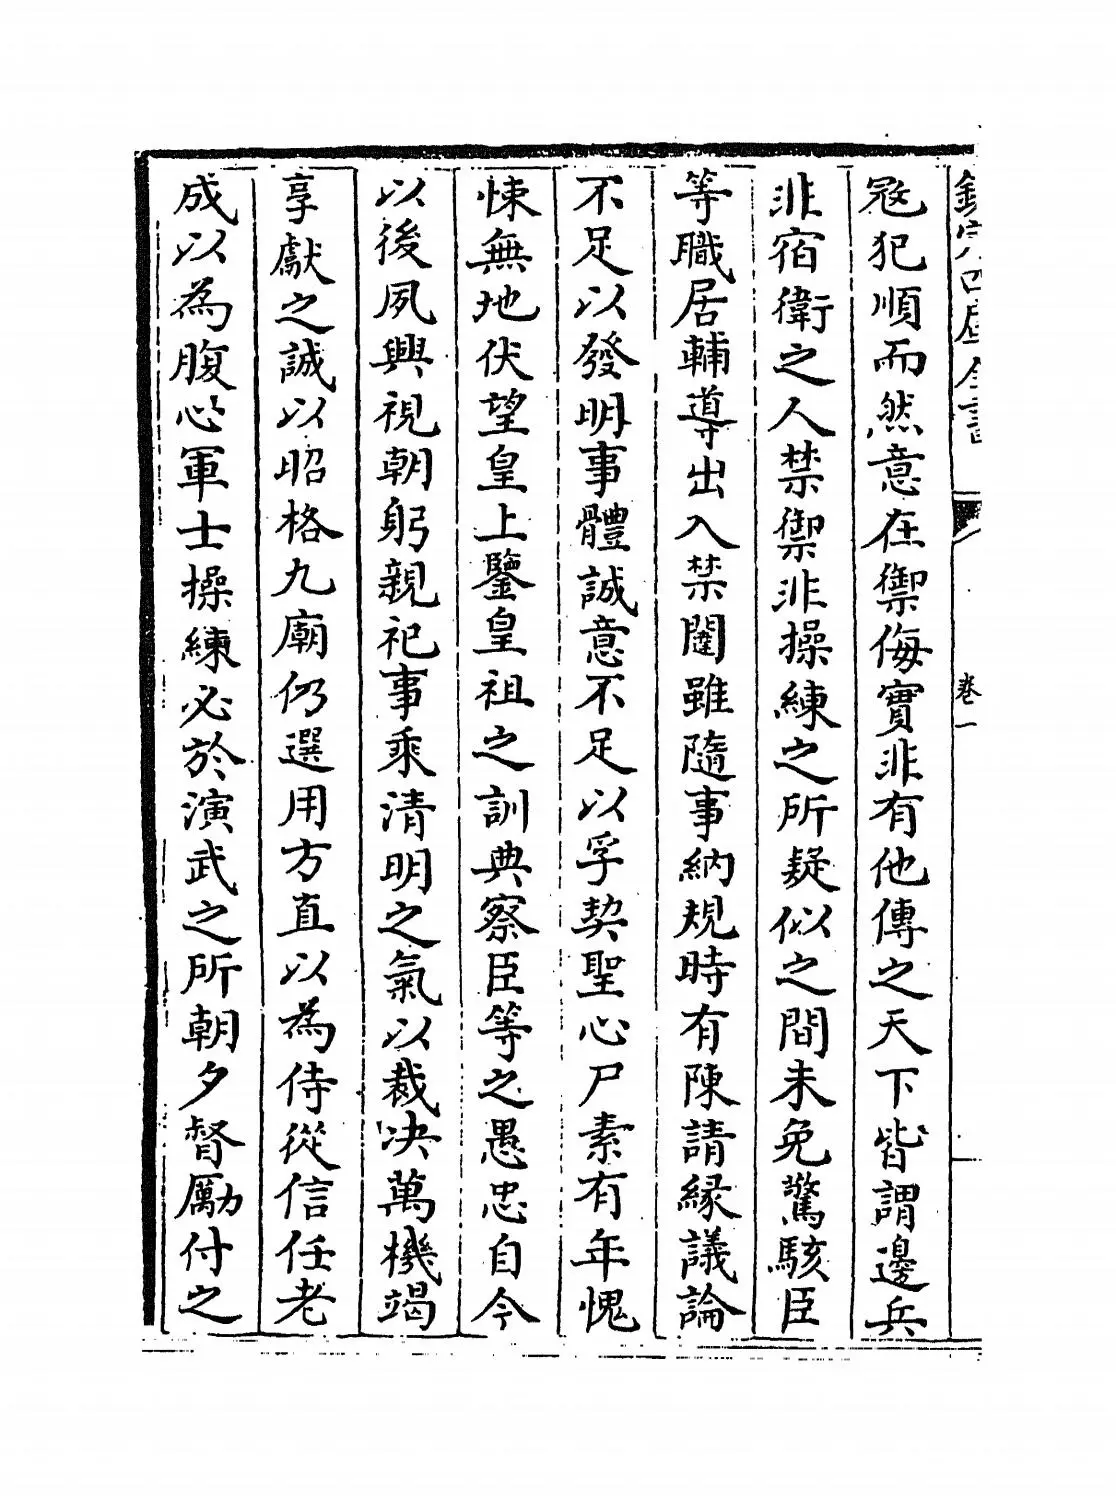 欽定四庫全書
卷一
冦犯順而然意在禦侮實非有他傳之天下皆謂邊兵
非宿衛之人禁禦非操練之所疑似之間未免驚駭臣
等職居輔導出入禁闥雖隨事納規時有陳請縁議論
不足以發明事體誠意不足以孚契聖心尸素有年愧
悚無地伏望皇上鑒皇祖之訓典察臣等之愚忠自今
以後夙興視朝躬親祀事乘清明之氣以裁决萬機竭
享獻之誠以昭格九廟仍選用方直以為侍從信任老
成以為腹心軍士操練必於演武之所朝夕督勵付之